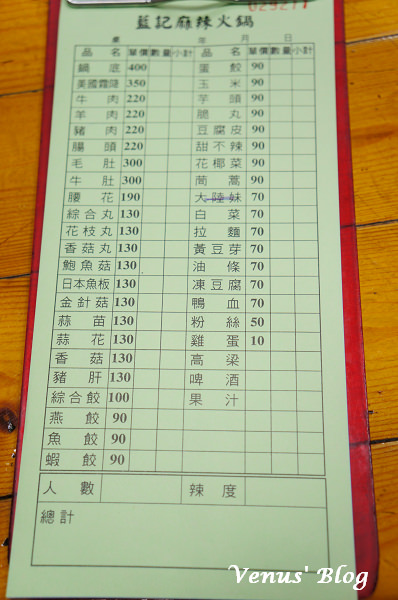 029277
藍記麻辣火鍋
桌 年 月 日
品名 單價 數量 小計 品名 單價 數量 小計
鍋底 400 蛋餃 90
美國霜降 350 玉米 90
牛肉 220 芋頭 90
羊肉 220 鴿丸 90
豬肉 220 豆腐皮 90
腸頭 220 甜不辣 90
毛肚 300 花椰菜 90
牛肚 300 茼蒿 90
腰花 190 大陸妹 70
綜合丸 130 白菜 70
花枝丸 130 拉麵 70
香菇丸 130 黃豆芽 70
鮑魚菇 130 油條 70
日本魚板 130 凍豆腐 70
金針菇 130 鴨血 70
蒜苗 130 粉絲 50
蒜花 130 雞蛋 10
香菇 130 高梁
豬肝 130 啤酒
綜合餃 100 果汁
燕餃 90
魚餃 90
蝦餃 90
人數 辣度
總計
Venus' Blog